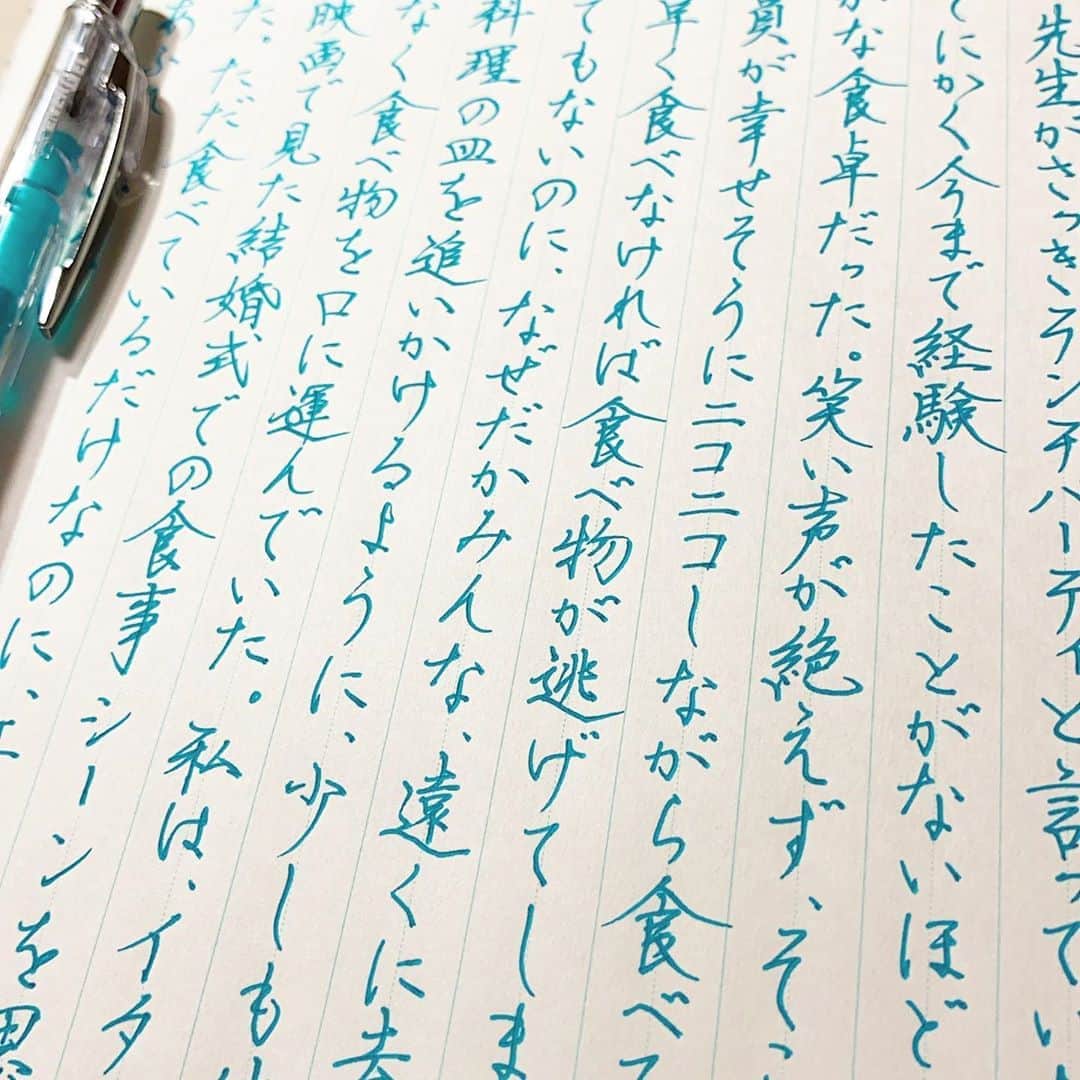 先生がさっきランチパーティと言ってい
てにかく今まで経験したことがないほど
かな食卓だった。笑い声が絶えず、そ
員が幸せそうにニコニコしながら食べて
早く食べなければ食べ物が逃げてしま
てもないのに、なぜだかみんな、遠くに去
料理の皿を追いかけるように、少しも
なく食べ物を口に運んでいた。私は、イタ
映画で見た結婚式での食事シーンを思
た。ただ食べているだけなのに、
あふ